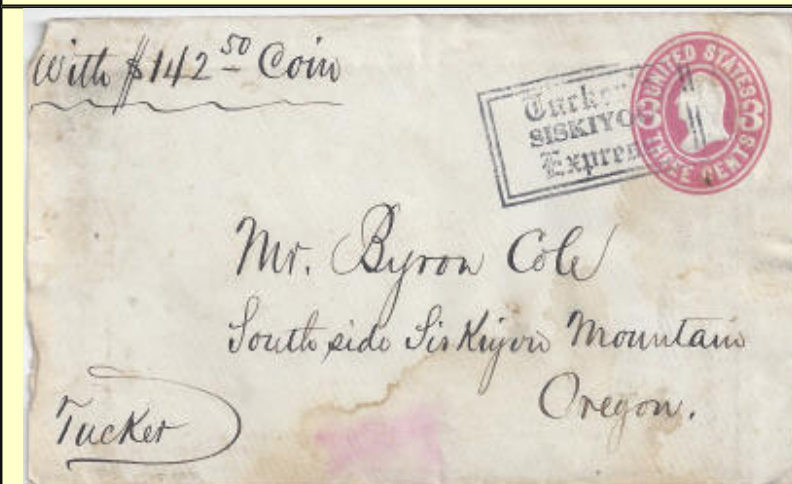 With $142 50 Coin
Tucker's
SISKIYOU
Express
UNITED STATES
3 3
THREE CENTS
Mr. Byron Cole
South side Siskiyou Mountain
Oregon.
Tucker